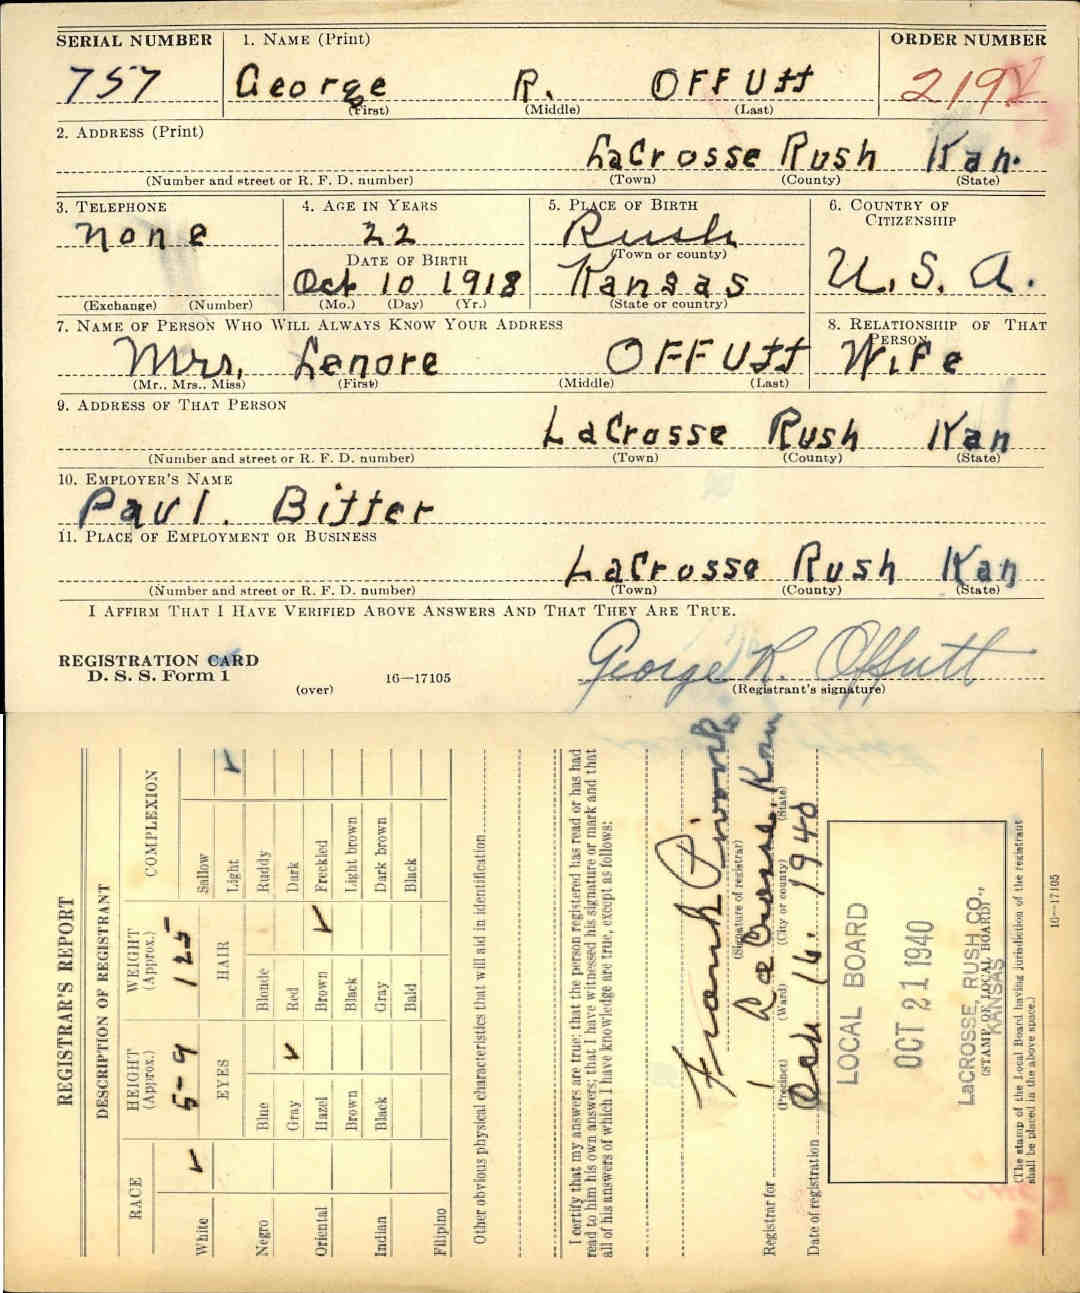 SERIAL NUMBER 1. NAME (Print) ORDER NUMBER
757 George R. OFFUtt 219
(First) (Middle) (Last)
2. ADDRESS (Print)
LaCrosse Rush Kan.
(Number and street or R. F. D. number) (Town) (County) (State)
3. TELEPHONE 4. AGE IN YEARS 5. PLACE OF BIRTH 6. COUNTRY OF CITIZENSHIP
none 22 Rush
DATE OF BIRTH (Town or county)
Oct 10 1918 Kansas U.S.A.
(Exchange) (Number) (Mo.) (Day) (Yr.) (State or country)
7. NAME OF PERSON WHO WILL ALWAYS KNOW YOUR ADDRESS 8. RELATIONSHIP OF THAT PERSON
Mrs. Lenore OFFUtt WiFe
(Mr., Mrs., Miss) (First) (Middle) (Last)
9. ADDRESS OF THAT PERSON
LaCrosse Rush Kan
(Number and street or R. F. D. number) (Town) (County) (State)
10. EMPLOYER'S NAME
Paul. Bitter
11. PLACE OF EMPLOYMENT OR BUSINESS
LaCrosse Rush Kan
(Number and street or R. F. D. number) (Town) (County) (State)
I AFFIRM THAT I HAVE VERIFIED ABOVE ANSWERS AND THAT THEY ARE TRUE.
George R. Offutt
REGISTRATION CARD
D. S. S. Form 1 (over) 16—17105 (Registrant's signature)
REGISTRAR'S REPORT
DESCRIPTION OF REGISTRANT
RACE HEIGHT (Approx.) WEIGHT (Approx.) COMPLEXION
White ✓ 5-9 125 Sallow
EYES HAIR Light ✓
Negro Blue Blonde Ruddy
Gray ✓ Red Dark
Oriental Hazel Brown ✓ Freckled
Brown Black Light brown
Indian Black Gray Dark brown
Bald Black
Filipino
Other obvious physical characteristics that will aid in identification
I certify that my answers are true; that the person registered has read or has had
read to him his own answers; that I have witnessed his signature or mark and that
all of his answers of which I have knowledge are true, except as follows:
Frank
(Signature of registrar)
Registrar for LaCrosse, Kan
(Precinct) (Ward) (City or county) (State)
Date of registration Oct 16. 1940
LOCAL BOARD
OCT 21 1940
LaCROSSE, RUSH CO.,
(STAMP OF LOCAL BOARD)
KANSAS
(The stamp of the Local Board having jurisdiction of the registrant
shall be placed in the above space.)
16—17105